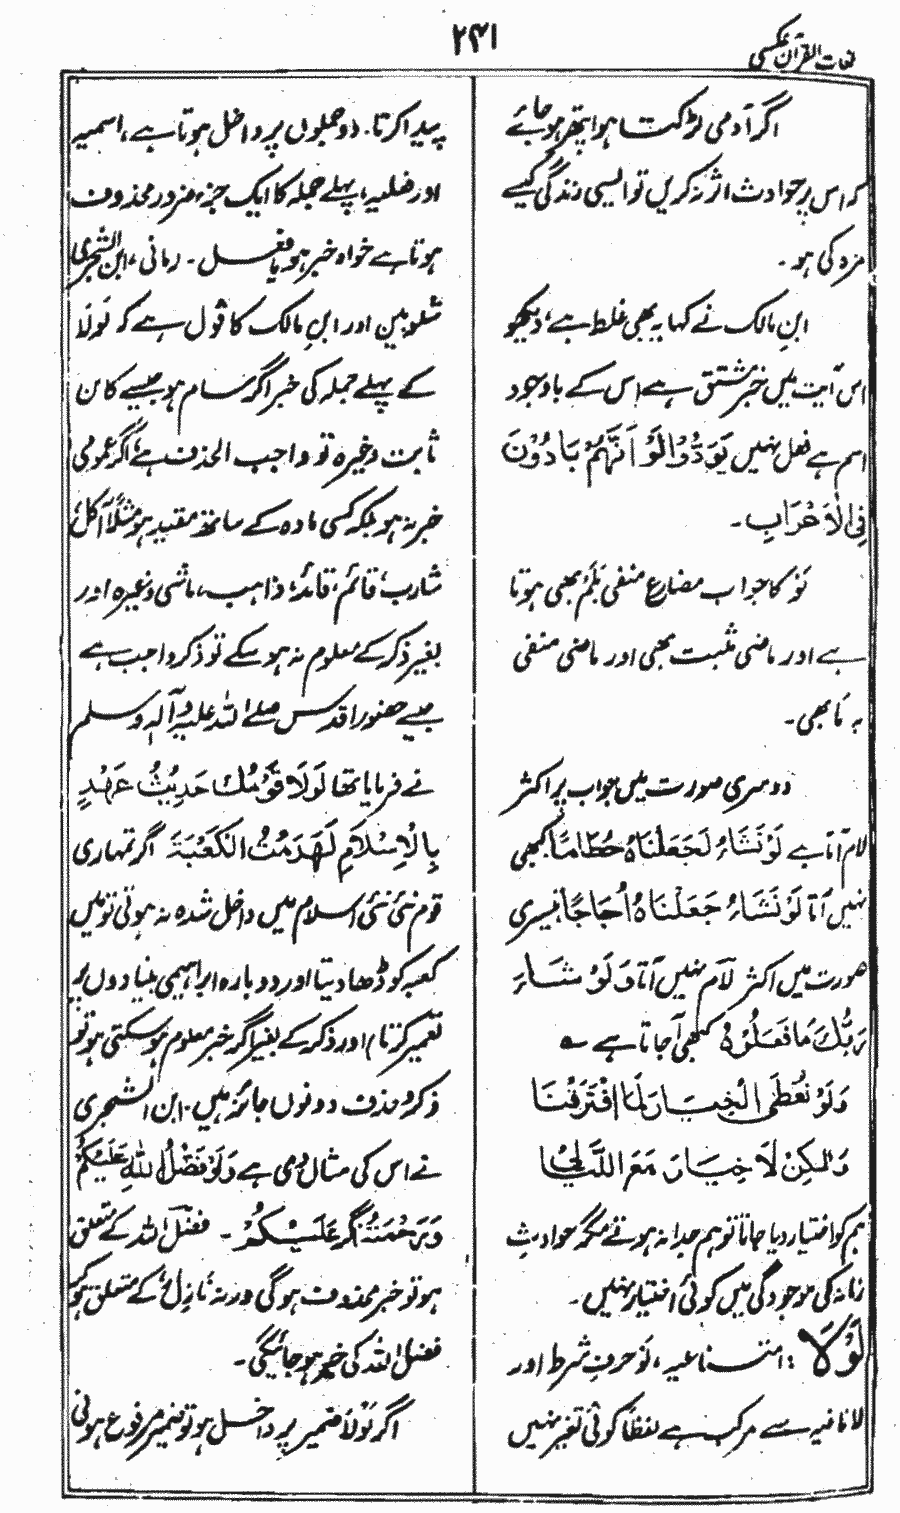 لغات القرآن عکسی
۲۴۱
اگر آدمی لڑکت ہوا پتھر ہو جائے
کہ اس پر حوادث اثر نہ کریں تو ایسی زندگی کیسے
مزہ کی ہو۔
ابن مالک نے کہا یہ بھی غلط ہے، دیکھو
اس آیت میں خبر مشتق ہے اس کے باوجود
اسم ہے فعل نہیں يَوَدُّوْا لَوْ اَنَّهُمْ بَادُوْنَ
فِی الْاَعْرَابِ۔
لَوْ کا جواب مضارع منفی بَلَمْ بھی ہوتا
ہے اور ماضی مثبت بھی اور ماضی منفی
بہ مَا بھی۔
دوسری صورت میں جواب پر اکثر
لام آتا ہے لَوْ نَشَاءُ لَجَعَلْنَاهُ حُطَامًا کبھی
نہیں آتا لَوْ نَشَاءُ جَعَلْنَاهُ اُجَاجًا تیسری
صورت میں اکثر لام نہیں آتا وَ لَوْ شَاءَ
رَبُّكَ مَا فَعَلُوْهُ کبھی آجاتا ہے ؎
وَلَوْ نُعْطَى الْخِيَارَ لَمَا افْتَرَقْنَا
وَلٰكِنْ لَا خِيَارَ مَعَ اللَّيَالِي
ہم کو اختیار دیا جاتا تو ہم جدا نہ ہوتے مگر حوادثِ
زمانہ کی موجودگی میں کوئی اختیار نہیں۔
لَوْلَا : امتناعیہ، لَوْ حرفِ شرط اور
لا نافیہ سے مرکب ہے لفظاً کوئی تغیر نہیں
پیدا کرتا۔ دو جملوں پر داخل ہوتا ہے، اسمیہ
اور فعلیہ، پہلے جملہ کا ایک جزء ضرور محذوف
ہوتا ہے خواہ خبر ہو یا فعل۔ رمانی، ابن الشجری
شلوبین اور ابن مالک کا قول ہے کہ لَوْلَا
کے پہلے جملہ کی خبر اگر عام ہو جیسے کائن
ثابت وغیرہ تو واجب الحذف ہے، اگر عمومی
خبر نہ ہو بلکہ کسی مادہ کے ساتھ مقید ہو مثلاً آکل،
شارب، قائم، قائد، ذاہب، ماشی وغیرہ اور
بغیر ذکر کے معلوم نہ ہو سکے تو ذکر واجب ہے
جیسے حضور اقدس صلے اللہ علیہ وآلہ وسلم
نے فرمایا تھا لَوْلَا قَوْمُكِ حَدِيْثُ عَهْدٍ
بِالْاِسْلَامِ لَهَدَمْتُ الْكَعْبَةَ اگر تمہاری
قوم نئی نئی اسلام میں داخل شدہ نہ ہوتی تو میں
کعبہ کو ڈھا دیتا اور دوبارہ ابراہیمی بنیادوں پر
تعمیر کرتا) اور ذکر کے بغیر اگر خبر معلوم ہو سکتی ہو تو
ذکر و حذف دونوں جائز ہیں۔ ابن الشجری
نے اس کی مثال دی ہے وَلَوْلَا فَضْلُ اللهِ عَلَيْكُمْ
وَرَحْمَتُهُ اگر عَلَيْكُمْ۔ فضل اللہ کے متعلق
ہو تو خبر محذوف ہوگی ورنہ نَازِلٌ کے متعلق ہو کر
فضل اللہ کی خبر ہو جائیگی۔
اگر لَوْلَا ضمیر پر داخل ہو تو ضمیر مرفوع ہونی